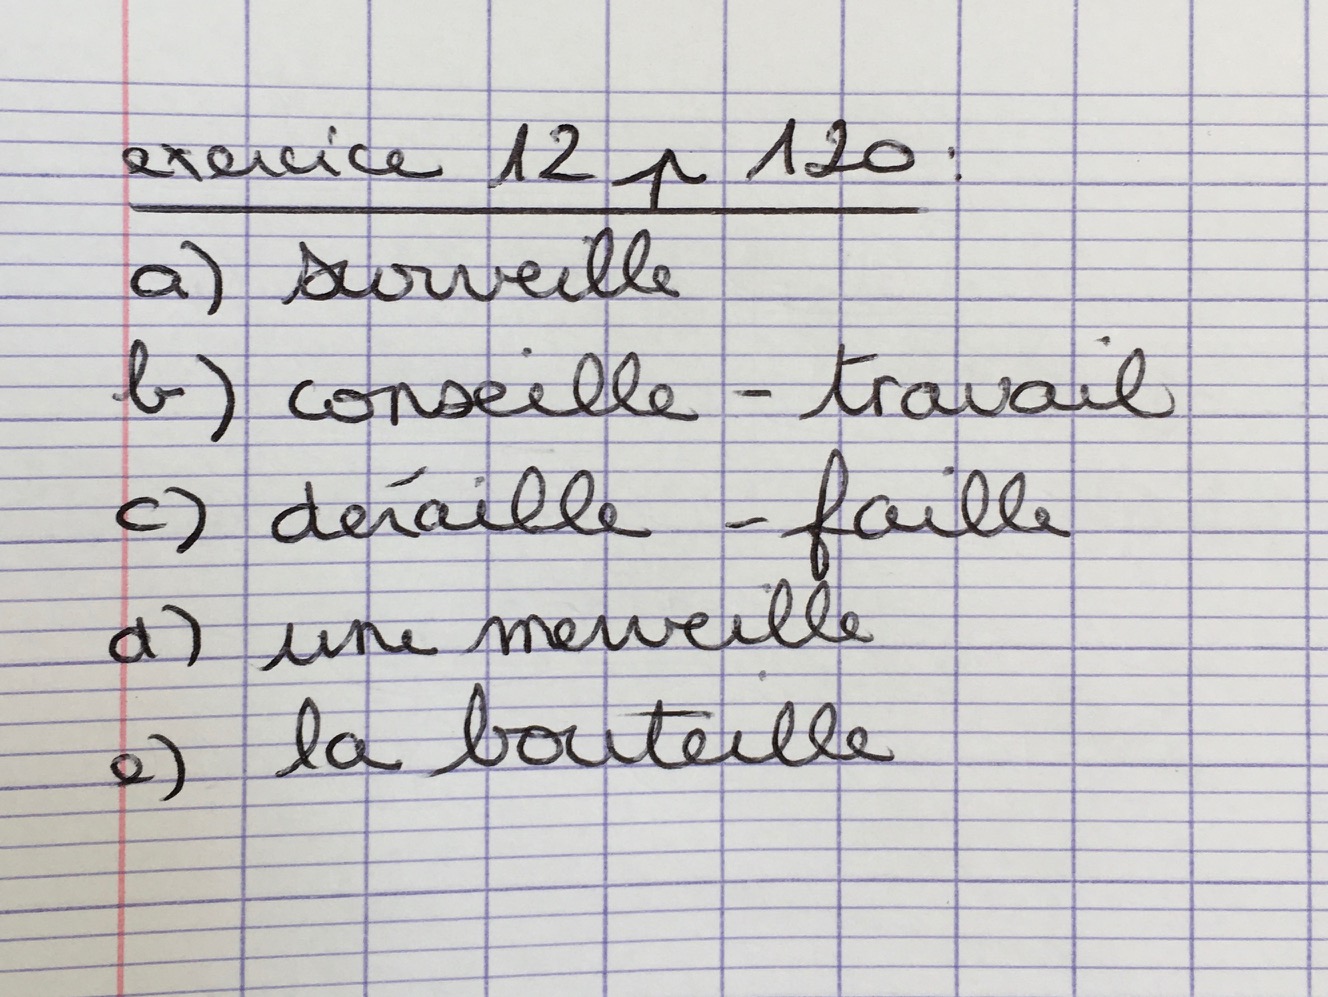 exercice 12 p 120 :
a) surveille
b) conseille - travail
c) déraille - faille
d) une merveille
e) la bouteille